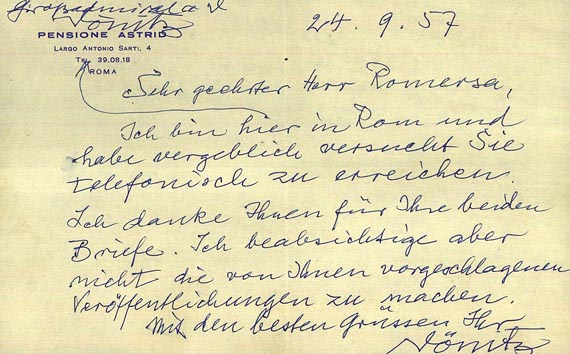 Großadmiral a D
Dönitz
PENSIONE ASTRID
LARGO ANTONIO SARTI, 4
TEL. 39.08.18
ROMA
24.9.57
Sehr geehrter Herr Romersa,
Ich bin hier in Rom und
habe vergeblich versucht Sie
telefonisch zu erreichen.
Ich danke Ihnen für Ihre beiden
Briefe. Ich beabsichtige aber
nicht die von Ihnen vorgeschlagenen
Veröffentlichungen zu machen.
Mit den besten Grüssen Ihr
Dönitz